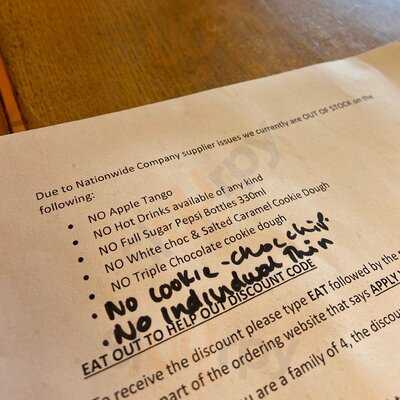 Due to Nationwide Company supplier issues we currently are OUT OF STOCK on the
following:
• NO Apple Tango
• NO Hot Drinks available of any kind
• NO Full Sugar Pepsi Bottles 330ml
• NO White choc & Salted Caramel Cookie Dough
• NO Triple Chocolate cookie dough
• NO COOKIE - choc chip.
• NO Individual Thin
EAT OUT TO HELP OUT DISCOUNT CODE
To receive the discount please type EAT followed by the
part of the ordering website that says APPLY
you are a family of 4, the discou